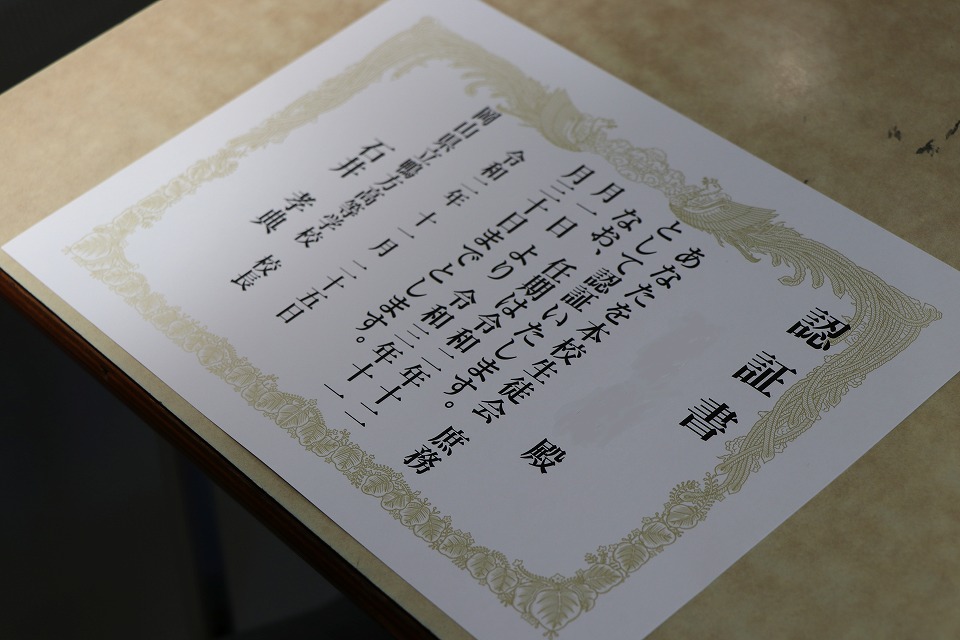 認証書
殿
あなたを本校生徒会庶務
として認証いたします。
なお、任期は令和二年十二
月一日より令和三年十一
月三十日までとします。
令和二年十一月二十五日
岡山県立鴨方高等学校校長
石井孝典